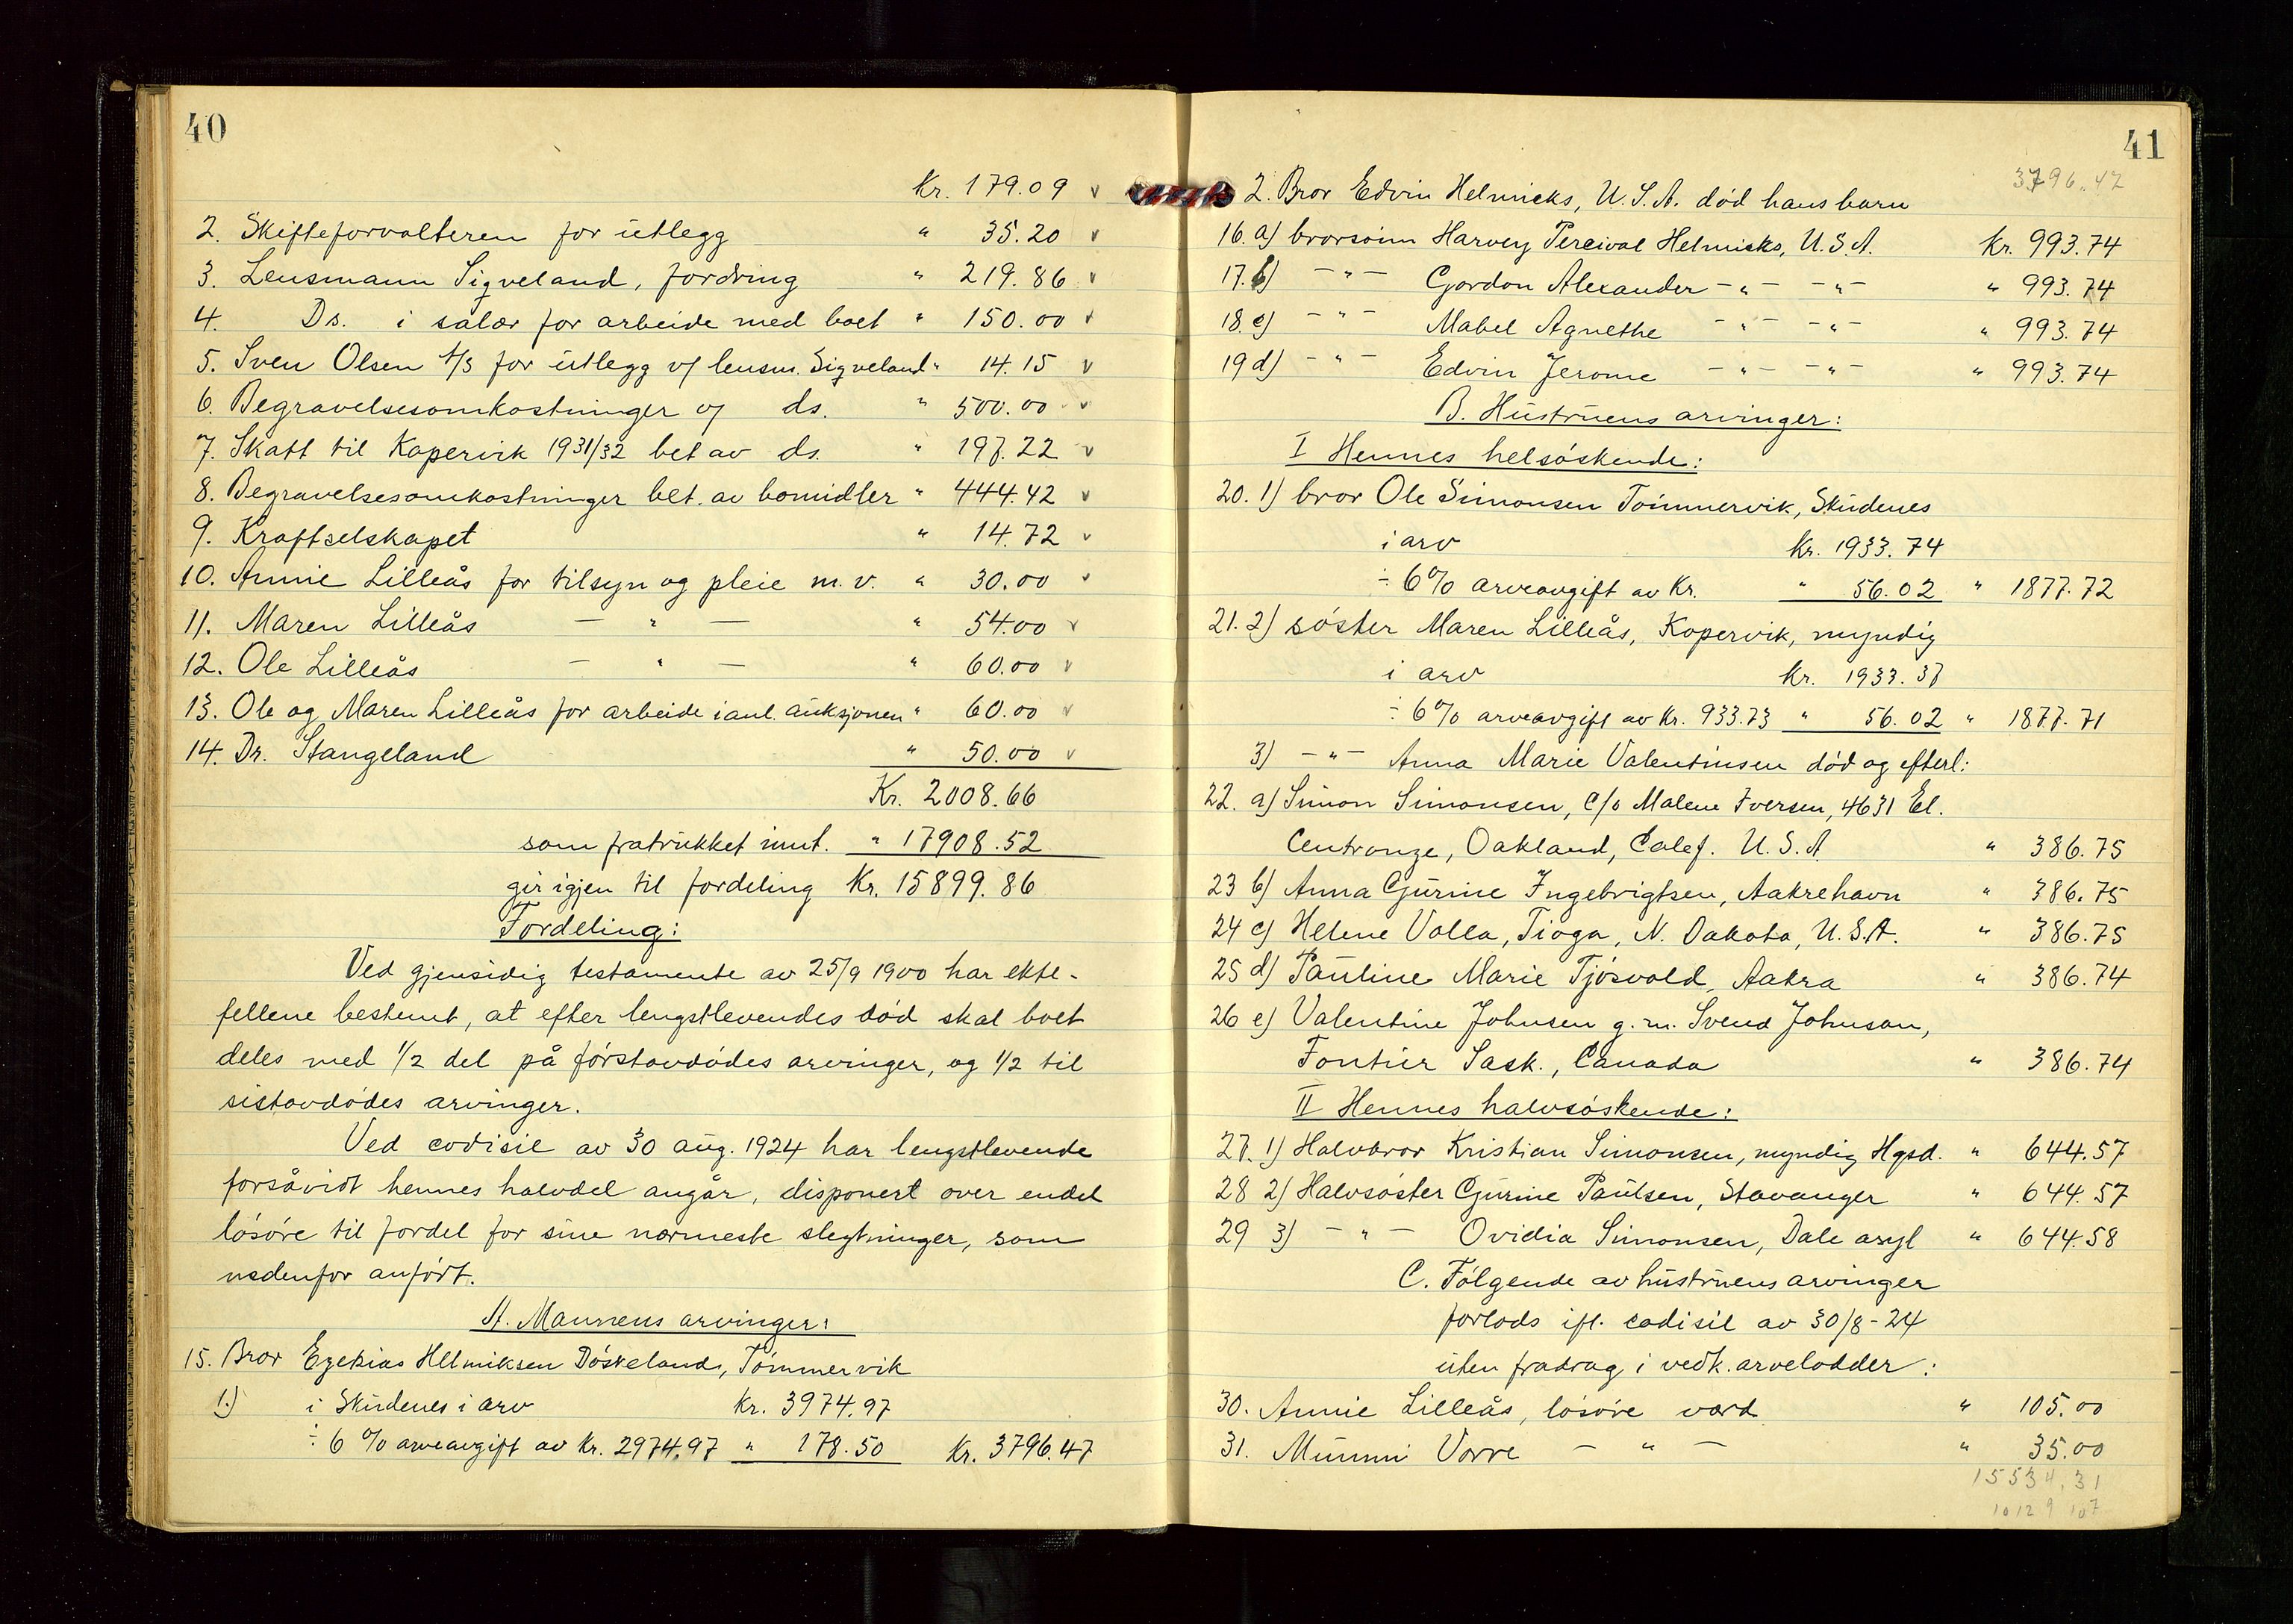 40
Kr. 179.09 v
2. Skifteforvalteren for utlegg " 35.20 v
3. Lensmann Sigveland, fordring " 219.86 v
4. Ds. i salær for arbeide med boet " 150.00 v
5. Sven Olsen A/S for utlegg v/ lensm. Sigveland " 14.15 v
6. Begravelsesomkostninger v/ ds. " 500.00 v
7. Skatt til Kopervik 1931/32 bet av ds. " 197.22 v
8. Begravelsesomkostninger bet. av bomidler " 444.42 v
9. Kraftselskapet " 14.72 v
10. Annie Lilleås for tilsyn og pleie m. v. " 30.00 v
11. Maren Lilleås — " — " 54.00 v
12. Ole Lilleås — " — " 60.00 v
13. Ole og Maren Lilleås for arbeide i anl. auksjonen " 60.00 v
14. Dr. Stangeland " 50.00 v
Kr. 2008.66
som fratrukket innt. " 17908.52
gir igjen til fordeling Kr. 15899.86
Fordeling:
Ved gjensidig testamente av 25/9 1900 har ekte-
fellene bestemt, at efter lengstlevendes død skal boet
deles med 1/2 del på førstavdødes arvinger, og 1/2 til
sistavdødes arvinger.
Ved codisil av 30 aug. 1924 har lengstlevende
forsåvidt hennes halvdel angår, disponert over endel
løsøre til fordel for sine nærmeste slegtninger, som
nedenfor anført.
A. Mannens arvinger:
15. Bror Ezekias Helmiksen Døskeland, Tømmervik
1.) i Skudenes i arv Kr. 3974.97
÷ 6 % arveavgift av Kr. 2974.97 " 178.50 Kr. 3796.47
41
3796.47
2. Bror Edvin Helmicks, U.S.A. død hans barn
16. a) brorsønn Harvey Percival Helmicks, U.S.A. Kr. 993.74
17. b) — " — Gordon Alexander — " — — " — " 993.74
18. c) — " — Mabel Agnethe — " — — " — " 993.74
19 d) — " — Edvin Jerome — " — — " — " 993.74
B. Hustruens arvinger:
I Hennes helsøskende:
20. 1) bror Ole Simonsen Tømmervik, Skudenes
i arv Kr. 1933.74
÷ 6% arveavgift av Kr. " 56.02 " 1877.72
21. 2) søster Maren Lilleås, Kopervik, myndig
i arv Kr. 1933.37
÷ 6% arveavgift av Kr. 933.73 " 56.02 " 1877.71
3) — " — Anna Marie Valentinsen død og efterl:
22. a) Simon Simonsen, c/o Malene Iversen, 4631 El.
Centronze, Oakland, Calef. U.S.A " 386.75
23 b) Anna Gurine Ingebrigtsen, Aakrehavn " 386.75
24 c) Helene Valla, Tioga, N. Dakota, U.S.A. " 386.75
25 d) Pauline Marie Tjøsvold, Aakra " 386.74
26 e) Valentine Johnsen g.m. Svend Johnson,
Fontier Sask., Canada " 386.74
II Hennes halvsøskende:
27. 1) Halvbror Kristian Simonsen, myndig Hgsd. " 644.57
28 2) Halvsøster Gurine Paulsen, Stavanger " 644.57
29 3) — " — Ovidia Simonsen, Dale asyl " 644.58
C. Følgende av hustruens arvinger
forlods ifl. codisil av 30/8-24
uten fradrag i vedk. arvelodder:
30. Annie Lilleås, løsøre værd " 105.00
31. Mummi Vorre — " — " 35.00
15534.31